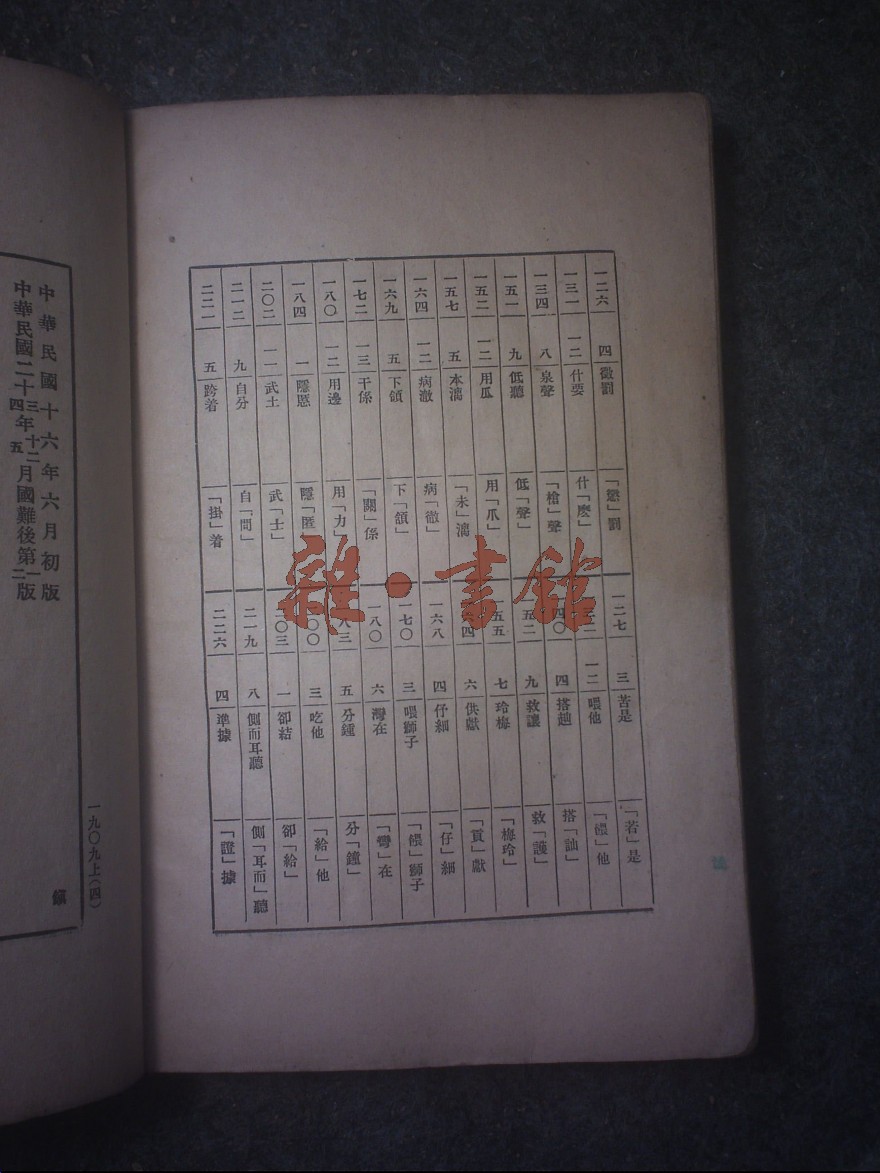 一二六 四 微罰 「懲」罰 一二七 三 苦是 「若」是
一三一 一二 什要 什「麽」 一二 喂他 「餵」他
一三四 八 泉聲 「槍」聲 四〇 四 搭趟 搭「訕」
一五一 九 低聽 低「聲」 五二 九 救讓 救「護」
一五二 一二 用瓜 用「爪」 五五 七 玲梅 「梅玲」
一五七 五 本滿 「未」滿 六四 六 供獻 「貢」獻
一六四 一二 病澈 病「徹」 一六八 四 仔細 「仔」細
一六九 五 下領 下「頷」 一七〇 三 喂獅子 「餵」獅子
一七二 一三 干係 「關」係 一八〇 六 灣在 「彎」在
一八〇 一二 用邊 用「力」 八三 五 分鍾 分「鐘」
一八四 一 隱慝 隱「匿」 〇〇 三 吃他 「給」他
二〇二 一一 武土 武「士」 二〇三 一 卻結 卻「給」
二一二 九 自分 自「問」 二一九 八 側而耳聽 側「耳而」聽
二二一 五 跨着 「掛」着 二二六 四 準據 「證」據
雜·書館
一九〇九上(四)
中華民國十六年六月初版
中華民國二十三四年十二五月國難後第一二版